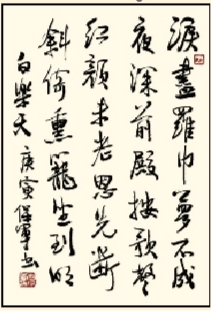 淚盡羅巾夢不成
夜深前殿按歌聲
紅顏未老恩先斷
斜倚熏籠坐到明
白樂天 庚寅 軍书